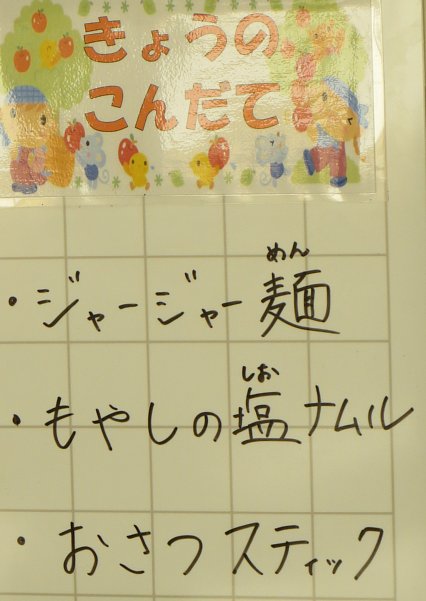 きょうの
こんだて
めん
・ジャージャー麺
しお
・もやしの塩ナムル
・おさつスティック